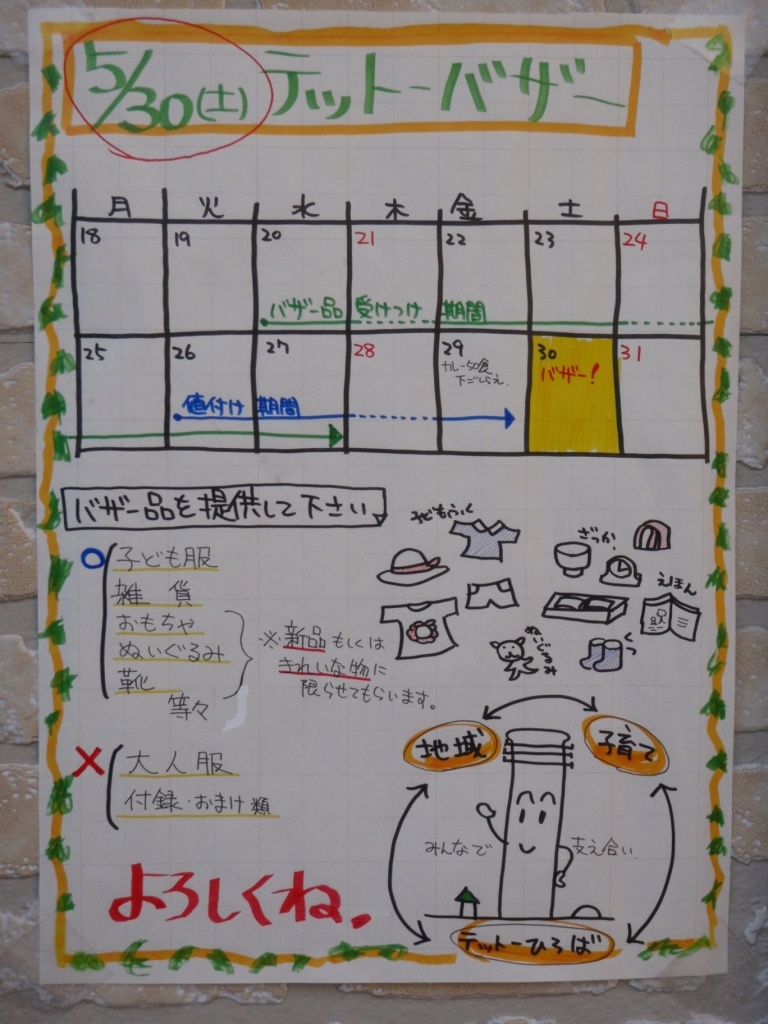 5/30(土) テットーバザー
月 火 水 木 金 土 日
18 19 20 21 22 23 24
バザー品 受けつけ 期間
25 26 27 28 29 30 31
カレー50食
下ごしらえ.
バザー!
値付け 期間
バザー品を提供して下さい
○ 子ども服
雑 貨
おもちゃ
ぬいぐるみ
靴
等々
※新品もしくは
きれいな物に
限らせてもらいます。
× 大人服
付録・おまけ類
よろしくね。
子どもふく
ざっか
えほん
ぬいぐるみ
くつ
地域
子育て
みんなで
支え合い
テットーひろば